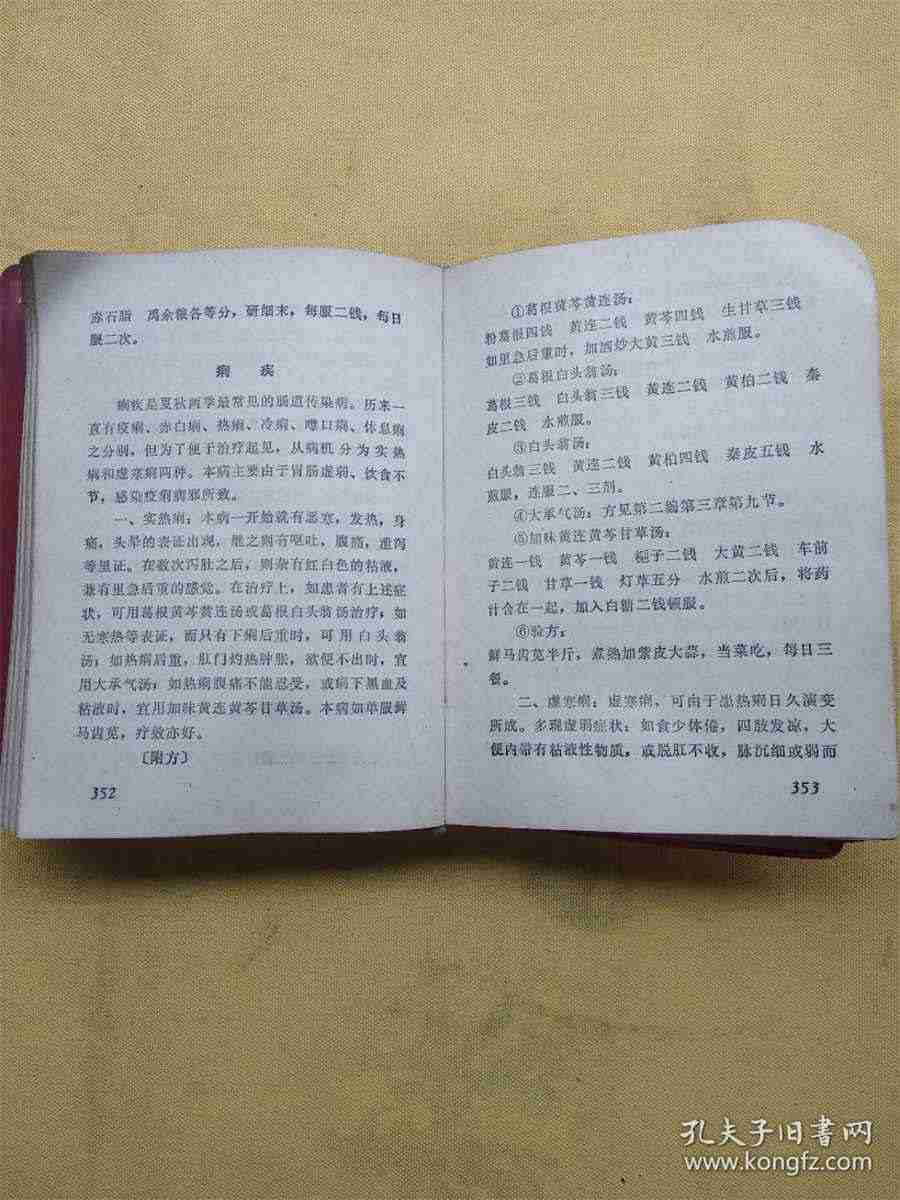 赤石脂　禹余粮各等分，研细末，每服二钱，每日
服二次。
痢　疾
痢疾是夏秋两季最常见的肠道传染病。历来一
直有疫痢、赤白痢、热痢、冷痢、噤口痢、休息痢
之分别，但为了便于治疗起见，从病机分为实热
痢和虚寒痢两种。本病主要由于胃肠虚弱、饮食不
节，感染疫痢病邪所致。
一、实热痢：本病一开始就有恶寒，发热，身
痛，头晕的表证出现，继之则有呕吐，腹痛，重泻
等里证。在数次泻肚之后，则杂有红白色的粘液，
兼有里急后重的感觉。在治疗上，如患者有上述症
状，可用葛根黄芩黄连汤或葛根白头翁汤治疗；如
无寒热等表证，而只有下痢后重时，可用白头翁
汤；如热痢后重，肛门灼热肿胀，欲便不出时，宜
用大承气汤；如热痢腹痛不能忍受，或痢下黑血及
粘液时，宜用加味黄连黄芩甘草汤。本病如单服鲜
马齿苋，疗效亦好。
〔附方〕
352
①葛根黄芩黄连汤：
粉葛根四钱　黄连二钱　黄芩四钱　生甘草三钱
如里急后重时，加酒炒大黄三钱　水煎服。
②葛根白头翁汤：
葛根三钱　白头翁三钱　黄连二钱　黄柏二钱　秦
皮二钱　水煎服。
③白头翁汤：
白头翁三钱　黄连二钱　黄柏四钱　秦皮五钱　水
煎服，连服二、三剂。
④大承气汤：方见第二编第三章第九节。
⑤加味黄连黄芩甘草汤：
黄连一钱　黄芩一钱　栀子二钱　大黄二钱　车前
子二钱　甘草一钱　灯草五分　水煎二次后，将药
汁合在一起，加入白糖二钱顿服。
⑥验方：
鲜马齿苋半斤，煮熟加紫皮大蒜，当菜吃，每日三
餐。
二、虚寒痢：虚寒痢，可由于患热痢日久演变
所成。多现虚弱症状：如食少体倦，四肢发凉，大
便内带有粘液性物质，或脱肛不收，脉沉细或弱而
353
孔夫子旧书网
www.kongfz.com